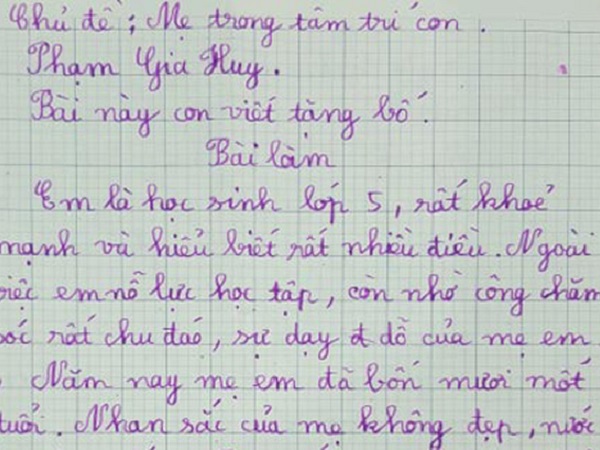 Chủ đề: Mẹ trong tâm trí con.
Phạm Gia Huy.
Bài này con viết tặng bố.
Bài làm
Em là học sinh lớp 5, rất khoẻ
mạnh và hiểu biết rất nhiều điều. Ngoài
việc em nỗ lực học tập, còn nhờ công chăm
sóc rất chu đáo, sự dạy dỗ của mẹ em
Năm nay mẹ em đã bốn mươi mốt
tuổi. Nhan sắc của mẹ không đẹp, nước